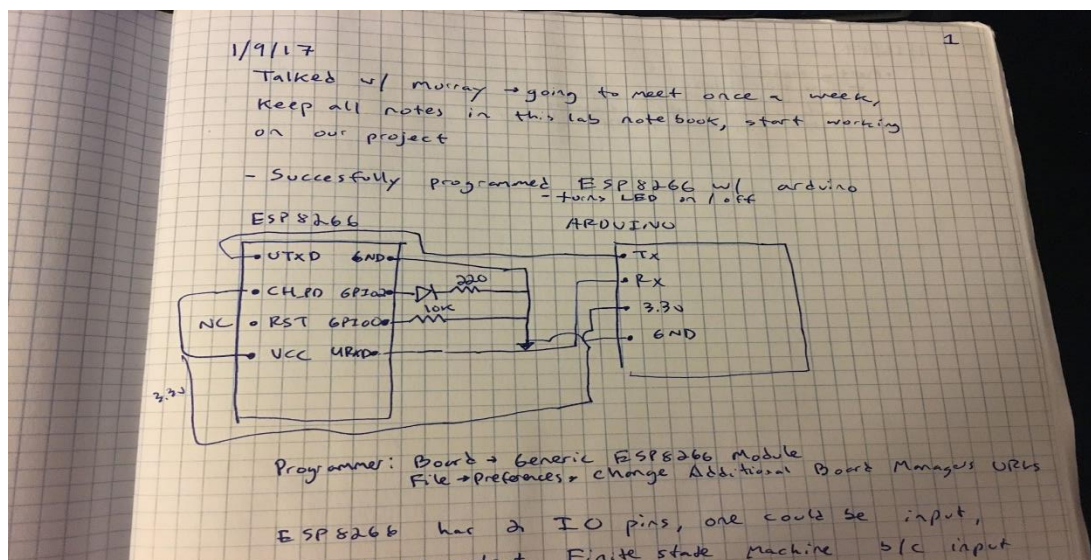 1
1/9/17
Talked w/ Murray → going to meet once a week,
Keep all notes in this lab notebook, start working
on our project
- Succesfully programmed ESP8266 w/ arduino
- turns LED on / off
ESP8266
ARDUINO
UTXD GND
CH_PD GPIO2 220
NC RST GPIO0 10K
VCC URXD
3.3V
TX
RX
3.3V
GND
Programmer: Board → Generic ESP8266 Module
File → Preferences, change Additional Board Managers URLs
ESP8266 has 2 IO pins, one could be input,
Finite state Machine b/c input